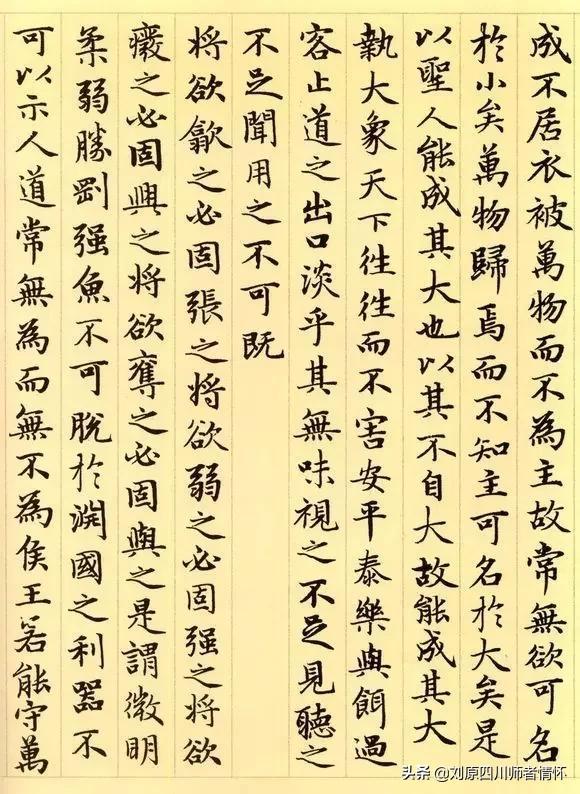 成不居衣被萬物而不為主故常無欲可名
於小矣萬物歸焉而不知主可名於大矣是
以聖人能成其大也以其不自大故能成其大
執大象天下往往而不害安平泰樂與餌過
客止道之出口淡乎其無味視之不足見聽之
不足聞用之不可既
将欲歙之必固張之将欲弱之必固强之将欲
癈之必固興之将欲奪之必固與之是謂微明
柔弱勝剛强魚不可脫於淵國之利器不
可以示人道常無為而無不為侯王若能守萬
头条 @刘原四川师者情怀